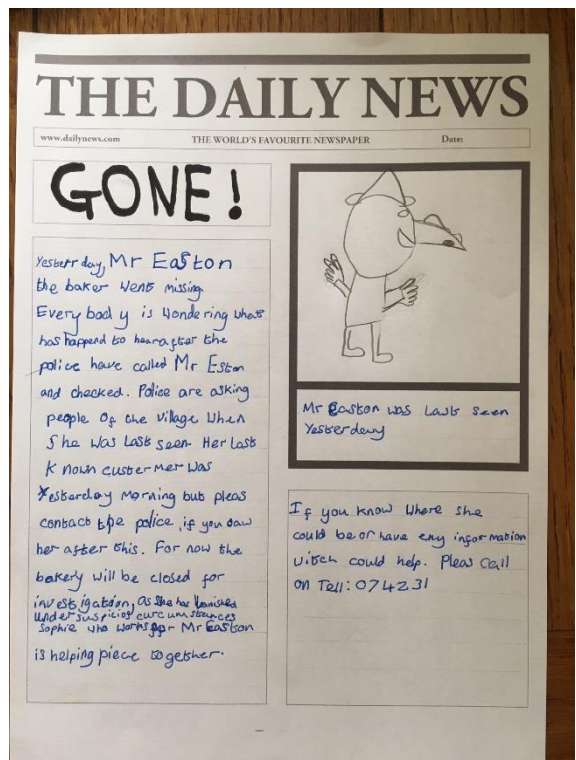 THE DAILY NEWS
www.dailynews.com THE WORLD'S FAVOURITE NEWSPAPER Date:
GONE!
Yesterday, Mr Easton
the baker went missing
Everybody is wondering what
has happend to hear after the
police have called Mr Eston
and checked. Police are asking
people of the village when
She was last seen. Her last
known custermer was
Yesterday morning but pleas
contact the police, if you saw
her after this. For now the
bakery will be closed for
investigation, as she has vanished
under suspicios curcumstances
Sophie who works for Mr Easton
is helping piece together.
Mr Easton was last seen
Yesterday
If you know where she
could be or have eny information
witch could help. Pleas call
on Tell: 074231